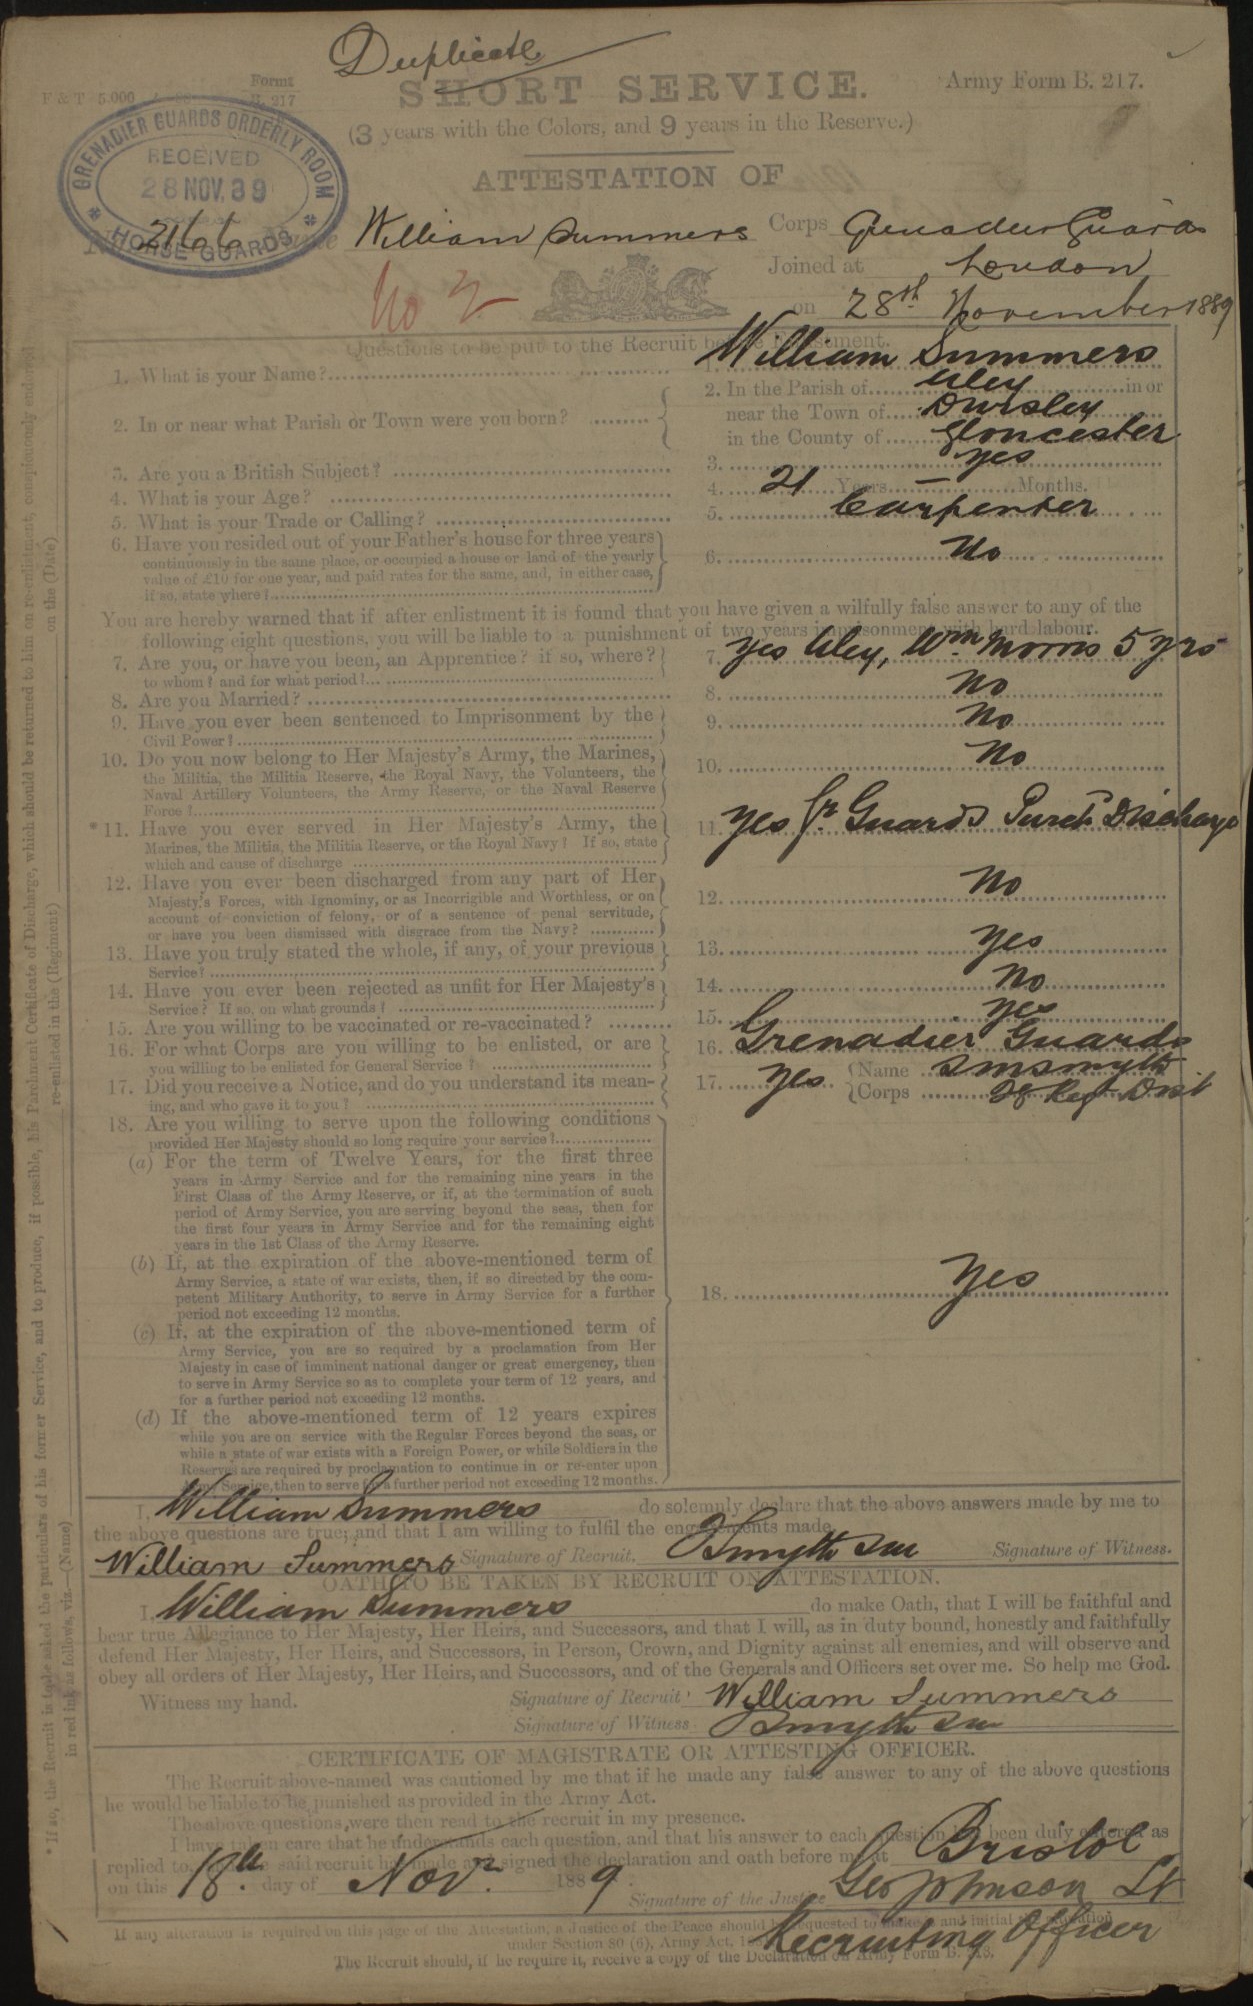 Duplicate
SHORT SERVICE.
Army Form B. 217.
F & T 5,000
Form
B. 217
(3 years with the Colors, and 9 years in the Reserve.)
ATTESTATION OF
GRENADIER GUARDS ORDERLY ROOM
RECEIVED
28 NOV. 89
HORSE GUARDS
2166 Name William Summers Corps Grenadier Guards
Joined at London
on 28th November 1889
No 2
Questions to be put to the Recruit before Enlistment.
1. What is your Name? 1. William Summers
2. In or near what Parish or Town were you born? 2. In the Parish of Uley in or
near the Town of Dursley
in the County of Gloucester
3. Are you a British Subject? 3. Yes
4. What is your Age? 4. 21 Years — Months.
5. What is your Trade or Calling? 5. Carpenter
6. Have you resided out of your Father's house for three years
continuously in the same place, or occupied a house or land of the yearly
value of £10 for one year, and paid rates for the same, and, in either case,
if so, state where? 6. No
You are hereby warned that if after enlistment it is found that you have given a wilfully false answer to any of the
following eight questions, you will be liable to a punishment of two years imprisonment with hard labour.
7. Are you, or have you been, an Apprentice? if so, where?
to whom? and for what period? 7. Yes Uley, Wm Morris 5 yrs
8. Are you Married? 8. No
9. Have you ever been sentenced to Imprisonment by the
Civil Power? 9. No
10. Do you now belong to Her Majesty's Army, the Marines,
the Militia, the Militia Reserve, the Royal Navy, the Volunteers, the
Naval Artillery Volunteers, the Army Reserve, or the Naval Reserve
Force? 10. No
*11. Have you ever served in Her Majesty's Army, the
Marines, the Militia, the Militia Reserve, or the Royal Navy? If so, state
which and cause of discharge 11. Yes Gr. Guards Purch Discharge
12. Have you ever been discharged from any part of Her
Majesty's Forces, with Ignominy, or as Incorrigible and Worthless, or on
account of conviction of felony, or of a sentence of penal servitude,
or have you been dismissed with disgrace from the Navy? 12. No
13. Have you truly stated the whole, if any, of your previous
Service? 13. Yes
14. Have you ever been rejected as unfit for Her Majesty's
Service? If so, on what grounds? 14. No
15. Are you willing to be vaccinated or re-vaccinated? 15. Yes
16. For what Corps are you willing to be enlisted, or are
you willing to be enlisted for General Service? 16. Grenadier Guards
17. Did you receive a Notice, and do you understand its mean-
ing, and who gave it to you? 17. Yes Name Smyth
Corps 28 Regt Dist
18. Are you willing to serve upon the following conditions
provided Her Majesty should so long require your service?
(a) For the term of Twelve Years, for the first three
years in Army Service and for the remaining nine years in the
First Class of the Army Reserve, or if, at the termination of such
period of Army Service, you are serving beyond the seas, then for
the first four years in Army Service and for the remaining eight
years in the 1st Class of the Army Reserve.
(b) If, at the expiration of the above-mentioned term of
Army Service, a state of war exists, then, if so directed by the com-
petent Military Authority, to serve in Army Service for a further
period not exceeding 12 months.
18. Yes
(c) If, at the expiration of the above-mentioned term of
Army Service, you are so required by a proclamation from Her
Majesty in case of imminent national danger or great emergency, then
to serve in Army Service so as to complete your term of 12 years, and
for a further period not exceeding 12 months.
(d) If the above-mentioned term of 12 years expires
while you are on service with the Regular Forces beyond the seas, or
while a state of war exists with a Foreign Power, or while Soldiers in the
Reserve are required by proclamation to continue in or re-enter upon
Army Service, then to serve for a further period not exceeding 12 months.
I, William Summers do solemnly declare that the above answers made by me to
the above questions are true; and that I am willing to fulfil the engagements made.
William Summers Signature of Recruit. Smyth Signature of Witness.
OATH TO BE TAKEN BY RECRUIT ON ATTESTATION.
I, William Summers do make Oath, that I will be faithful and
bear true Allegiance to Her Majesty, Her Heirs, and Successors, and that I will, as in duty bound, honestly and faithfully
defend Her Majesty, Her Heirs, and Successors, in Person, Crown, and Dignity against all enemies, and will observe and
obey all orders of Her Majesty, Her Heirs, and Successors, and of the Generals and Officers set over me. So help me God.
Witness my hand. Signature of Recruit William Summers
Signature of Witness Smyth
CERTIFICATE OF MAGISTRATE OR ATTESTING OFFICER.
The Recruit above-named was cautioned by me that if he made any false answer to any of the above questions
he would be liable to be punished as provided in the Army Act.
The above questions were then read to the recruit in my presence.
I have taken care that he understands each question, and that his answer to each question has been duly entered as
replied to, and the said recruit has made and signed the declaration and oath before me at Bristol
on this 18th day of Novr. 1889
Signature of the Justice Geo Johnson Lt
Recruiting Officer
If any alteration is required on this page of the Attestation, a Justice of the Peace should be requested to make it and initial the alteration
under Section 80 (6), Army Act,
The Recruit should, if he require it, receive a copy of the Declaration on Army Form B. 218.
* If so, the Recruit is to be asked the particulars of his former Service, and to produce, if possible, his Parchment Certificate of Discharge, which should be returned to him on re-enlistment, conspicuously endorsed
in red ink, as follows, viz.—(Name) re-enlisted in the (Regiment) on the (Date)